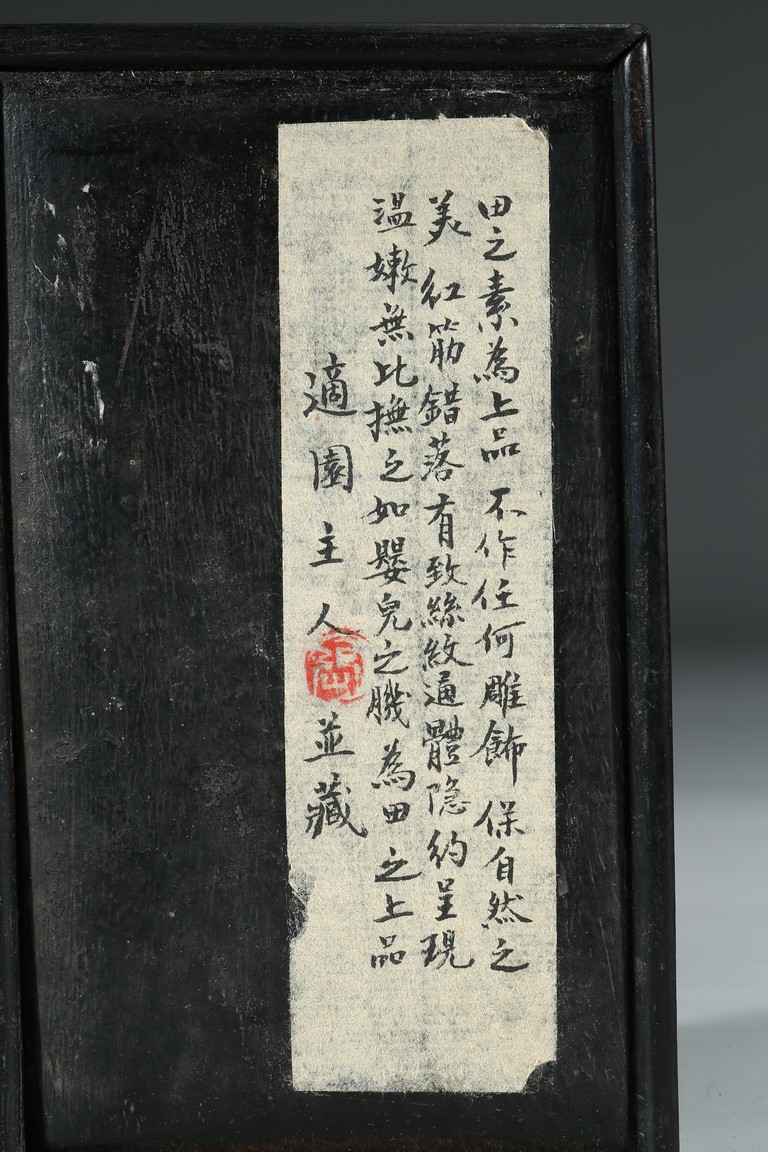 田之素為上品不作任何雕飾保自然之
美紅筋錯落有致絲紋遍體隐約呈現
温嫩無比撫之如嬰兒之膱為田之上品
適園主人並藏